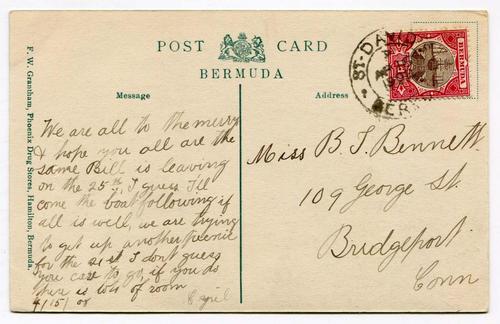 POST CARD
BERMUDA
Message
Address
F. W. Grantham, Phoenix Drug Stores, Hamilton, Bermuda.
ST. DAVID
BER
BERMUDA
We are all to the merry
& hope you all are the
same Bill is leaving
on the 25th, I guess I'll
come the boat following if
all is well, we are trying
to get up another picnic
for the 21st I dont guess
you care to go, if you do
there is lots of room
4/15/08
April
Miss B. J. Bennett.
109 George St.
Bridgeport.
Conn